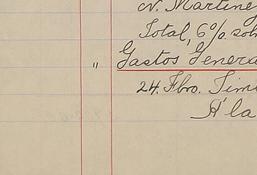 N. Martinez
Total, 6% sob
" Gastos Genera
24. Fbro. Tim
A' la